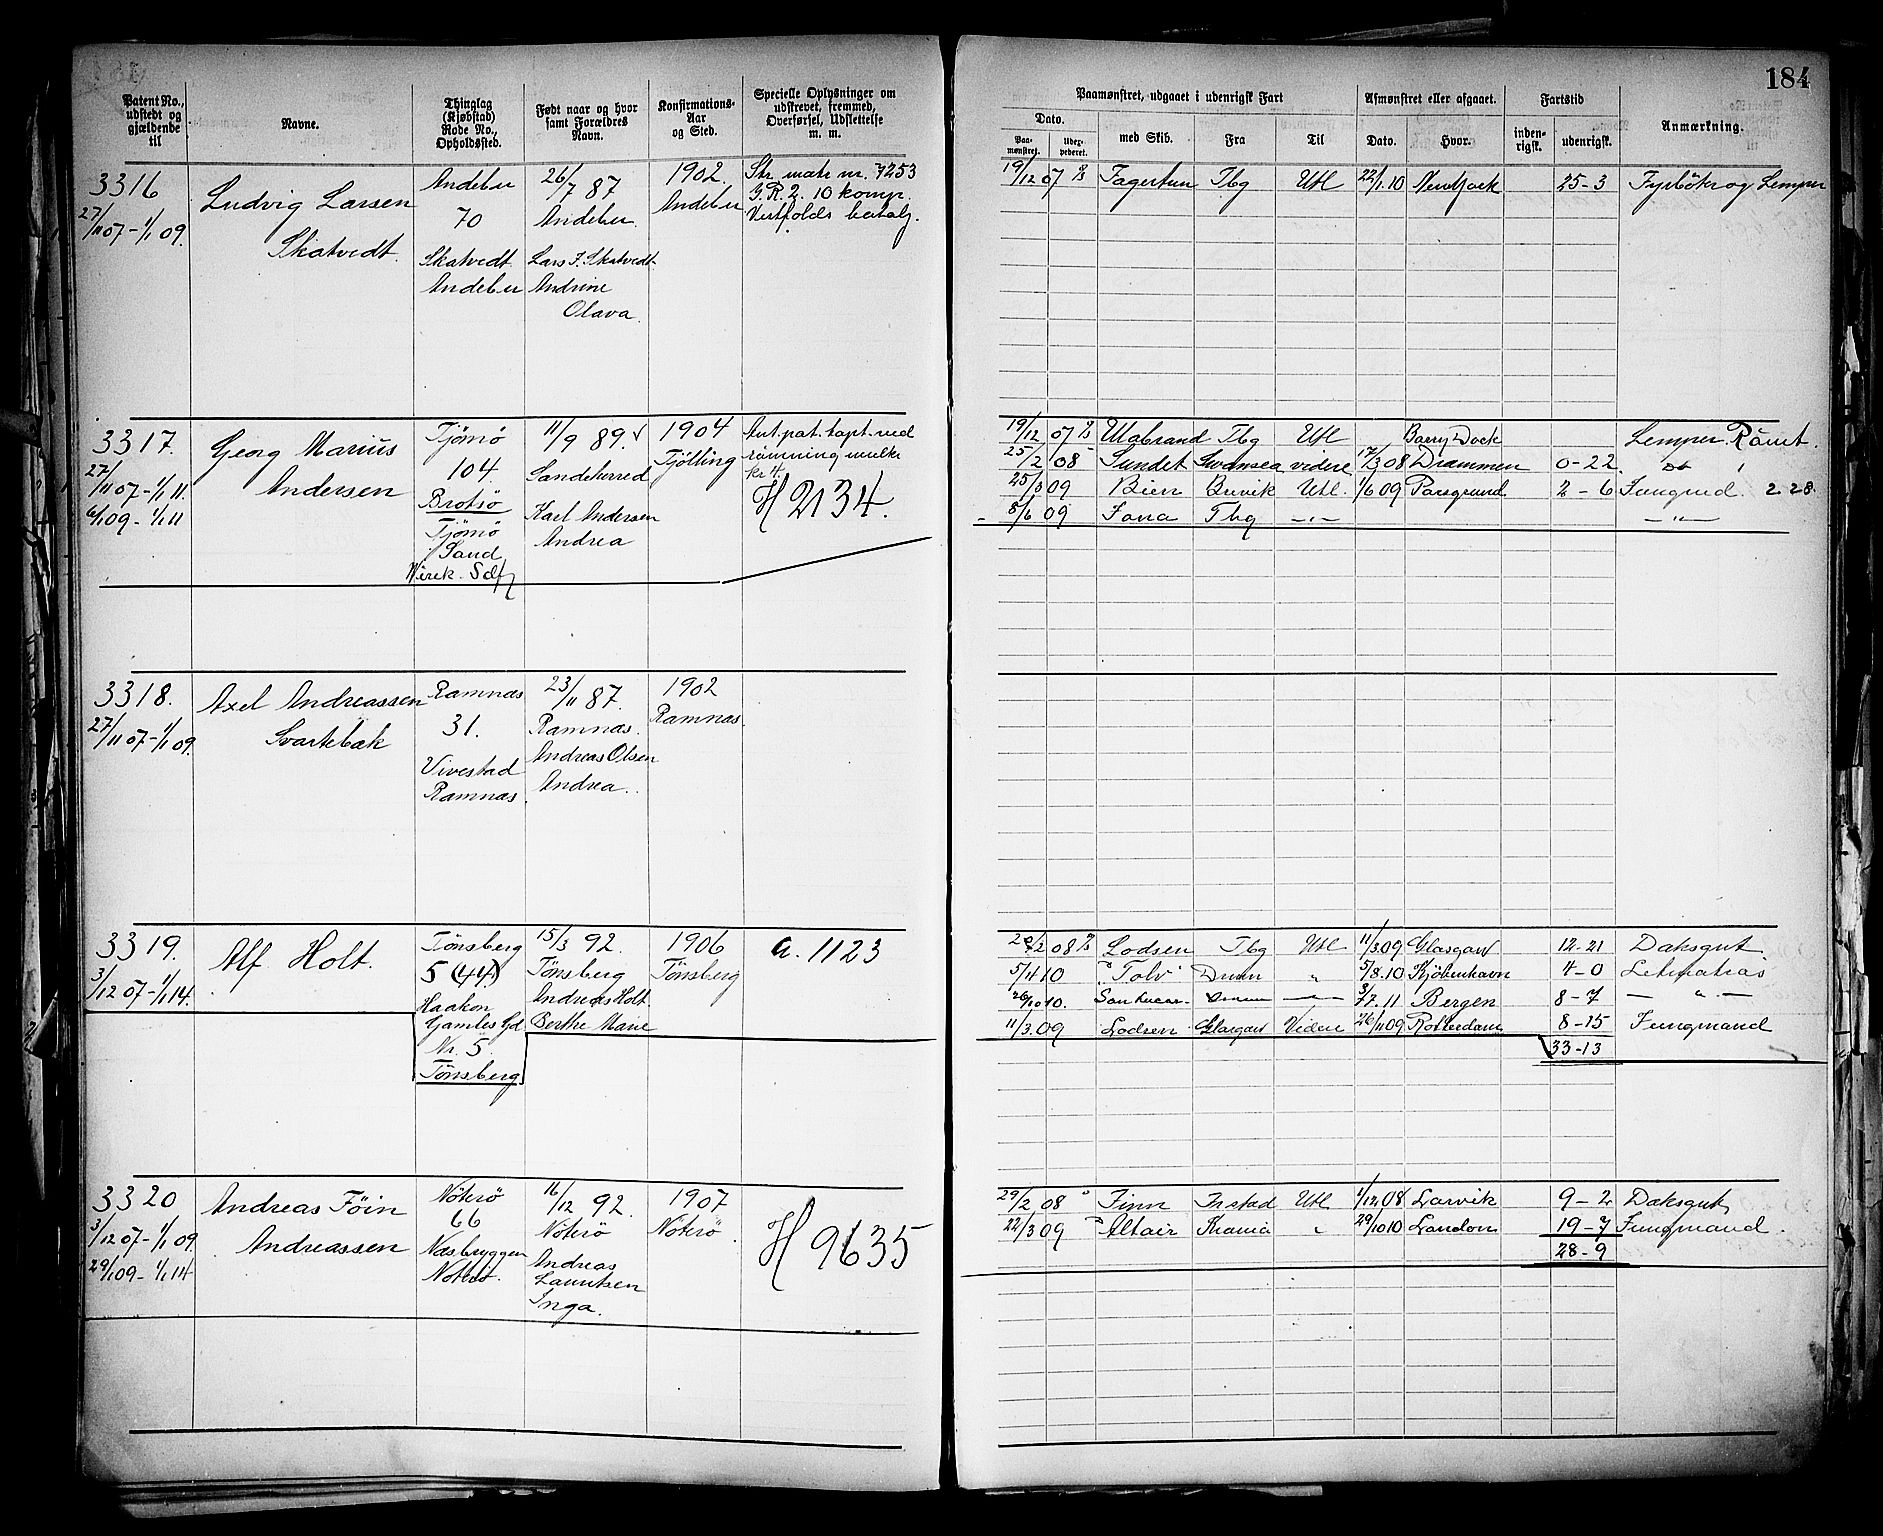 184
Patent No., udstedt og gjældende til
Navne.
Thinglag (Kjøbstad) Rode No., Opholdssted.
Født naar og hvor samt Forældres Navn.
Konfirmations-Aar og Sted.
Specielle Oplysninger om udskrevet, fremmed, Overførsel, Udslettelse m. m.
Paamønstret, udgaaet i udenrigsk Fart
Dato.
Paamønstret.
med Skib.
Fra
Til
Afmønstret eller afgaaet.
Dato.
Hvor.
Fartstid
indenrigsk.
udenrigsk.
Anmærkning.
3316
27/11 07-1/1 09.
Ludvig Larsen
Skatvedt.
Andebu
70
Skatvedt
Andebu
26/7 87
Andebu.
Lars J. Skatvedt
Andrine
Olava.
1902.
Andebu
Str. matr. nr. 7253
G.R. 2. 10 komp.
Vestfolds bataly.
19/12 07 Fagertun Tbg Utl 22/1.10 Newyork 25-3 Fyrbøter og Lemper
3317.
27/11 07-1/1 11.
6/1 09-1/1 11
Georg Marius
Andersen
Tjömö
104.
Brotsö
Tjömö
Sand
11/9 89.
Sandeherred
Karl Andersen
Andrea
1904
Tjølling
Ant. pat. tapt ved
rømning mulkt
kr 4.
H 2134.
19/12 07 Ulabrand Tbg Utl Barry Dock Lemper Römt.
25/2 08 Sundet Swansea videre 17/3 08 Drammen 0-22.
25/3 09 Bien Brevik Utl. 1/6 09 Porsgrund 2-6 Jungmd. 2 28
8/6 09 Fana Tbg -"- -"-
3318.
27/11 07-1/1 09.
Axel Andreassen
Svartebak
Ramnæs
31.
Vivestad
Ramnæs.
23/11 87.
Ramnæs.
Andreas Olsen
Andrea.
1902
Ramnæs.
3319.
3/12 07-1/1 14.
Alf Holt.
Tönsberg
5 (44)
Haakon
Gamles Gd
Nr. 5.
Tönsberg
15/3 92.
Tönsberg
Andreas Holt.
Berthe Marie
1906
Tönsberg
a. 1123
2 08 Lodsen Tbg Utl 11/3.09 Glasgow 12-21 Dæksgut
5/4 10 "Tolv" Drmn " 5/8.10 Kjöbenhavn 4-0 Letmatros
26/10 10. Drmn 3/7.11 Bergen 8-7 - " -
11/3.09 Lodsen Glasgow Videre 26/11 09 Rotterdam 8-15 Jungmand
33-13
3320
3/12 07-1/1 09.
29/1 09-1/1 14
Andreas Föin
Andreassen
Nöterö
66
Næsbryggen
Nöterö.
16/12 92.
Nöterö
Andreas
Lauritsen
Inga.
1907
Nöterö.
H 9635
29/2 08 Finn Frstad Utl 1/12 08 Larvik 9-2 Dæksgut
22/3 09 Altair Krania " 29/10 10 London 19-7 Jungmand.
28-9